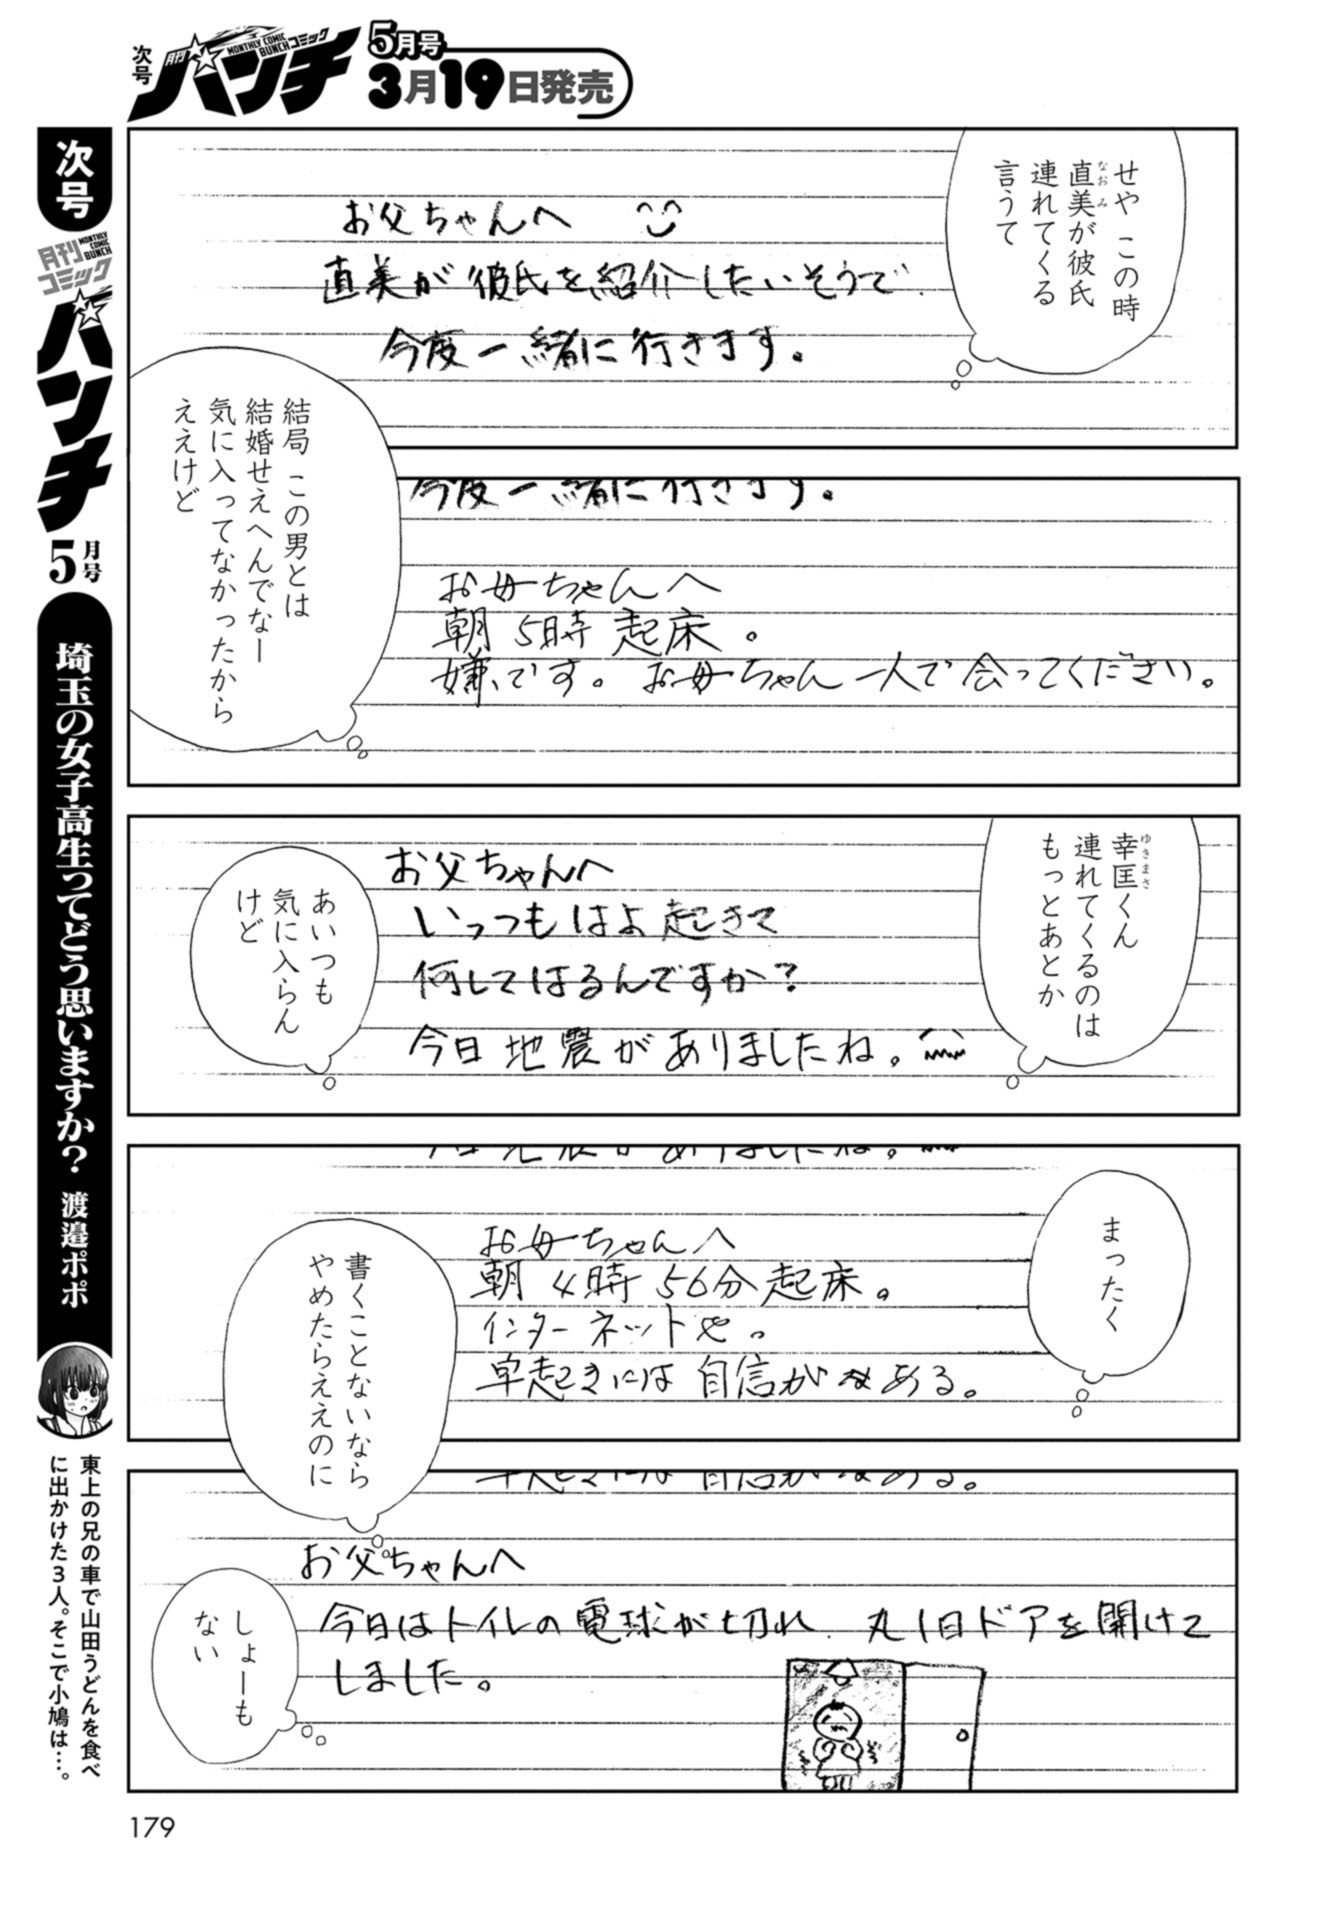 次号
月刊
MONTHLY COMIC BUNCH
コミック
バンチ
5月号
3月19日発売
せや この時
直美が彼氏
連れてくる
言うて
なおみ
お父ちゃんへ
直美が彼氏を紹介したいそうで
今度一緒に行きます。
結局 この男とは
結婚せえへんでなー
気に入ってなかったから
ええけど
今度一緒に行きます。
お母ちゃんへ
朝 5時 起床。
嫌です。お母ちゃん一人で会ってください。
幸匡くん
連れてくるのは
もっとあとか
ゆきまさ
お父ちゃんへ
いっつもはよ起きて
何してはるんですか?
今日地震がありましたね。
あいつも
気に入らん
けど
まったく
今日地震がありましたね。
お母ちゃんへ
朝 4時 56分 起床。
インターネットや。
早起きには自信がある。
書くことないなら
やめたらええのに
早起きには自信がある。
お父ちゃんへ
今日はトイレの電球が切れ、丸1日ドアを開けて
しました。
しょーも
ない
次号
月刊
MONTHLY COMIC BUNCH
コミック
バンチ
5月号
埼玉の女子高生ってどう思いますか?
渡邉ポポ
東上の兄の車で山田うどんを食べ
に出かけた3人。そこで小鳩は…。
179